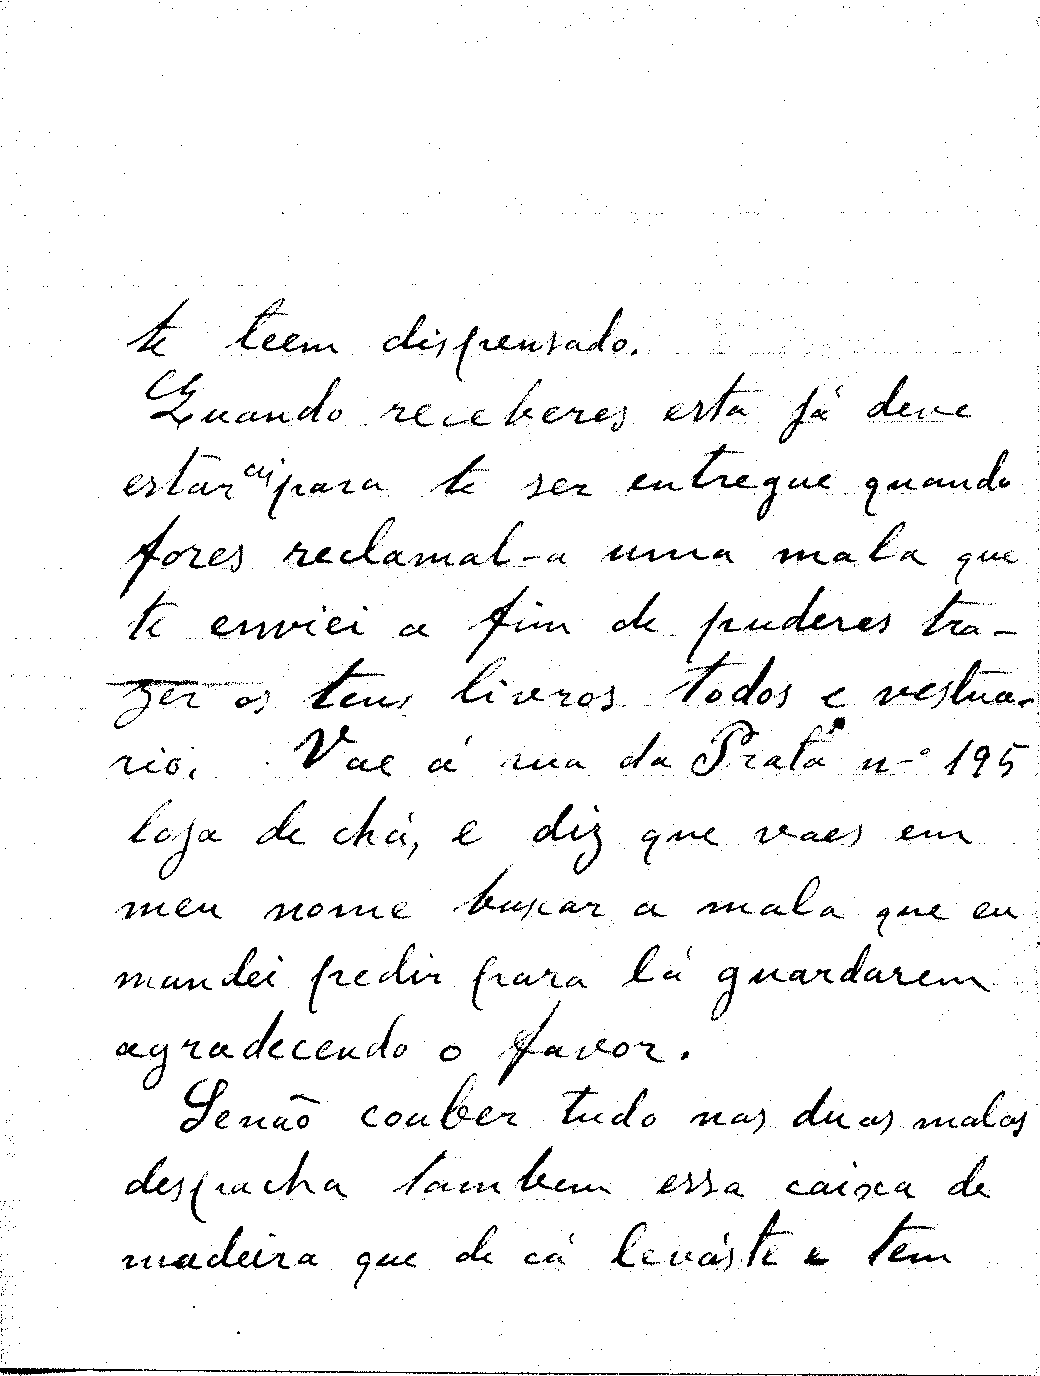 te teem dispensado.
Quando receberes esta já deve
estar ai para te ser entregue quando
fores reclamal-a uma mala que
te enviei a fim de puderes tra-
zer os teus livros todos e vestua-
rio. Vae á rua da Prata nº 195
loja de chá, e diz que vaes em
meu nome buscar a mala que eu
mandei pedir para lá guardarem
agradecendo o favor.
Senão couber tudo nas duas malas
despacha tambem essa caixa de
madeira que de cá leváste e tem